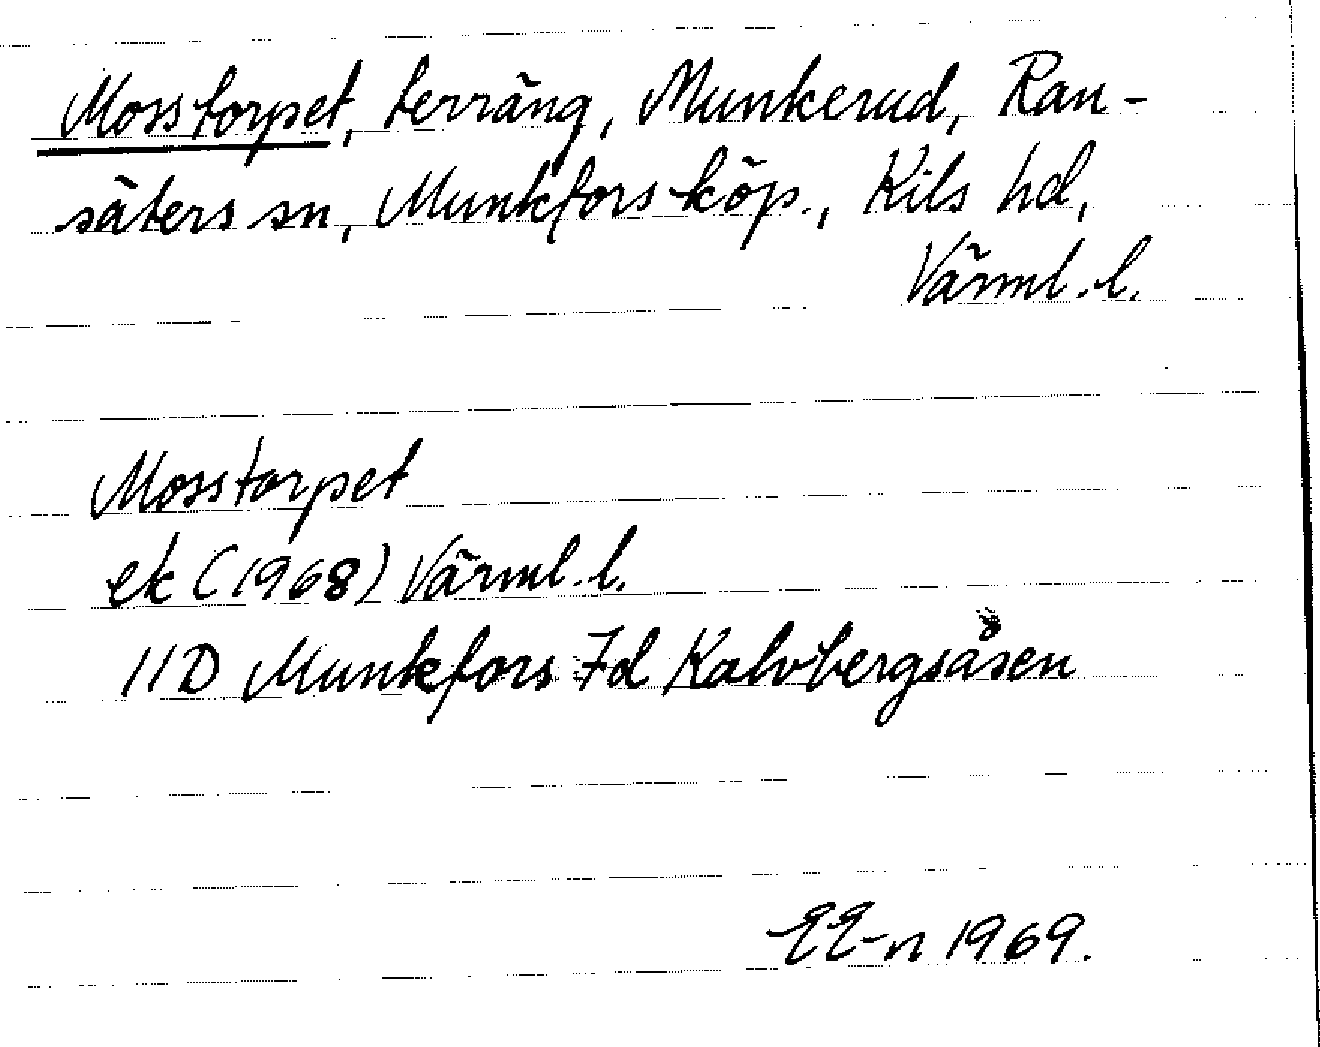 Mosstorpet, terräng, Munkerud, Ran-
säters sn, Munkfors köp., Kils hd,
Värml. l.
Mosstorpet
ek (1968) Värml. l.
11D Munkfors 7d Kalvbergsåsen
EE-n 1969.